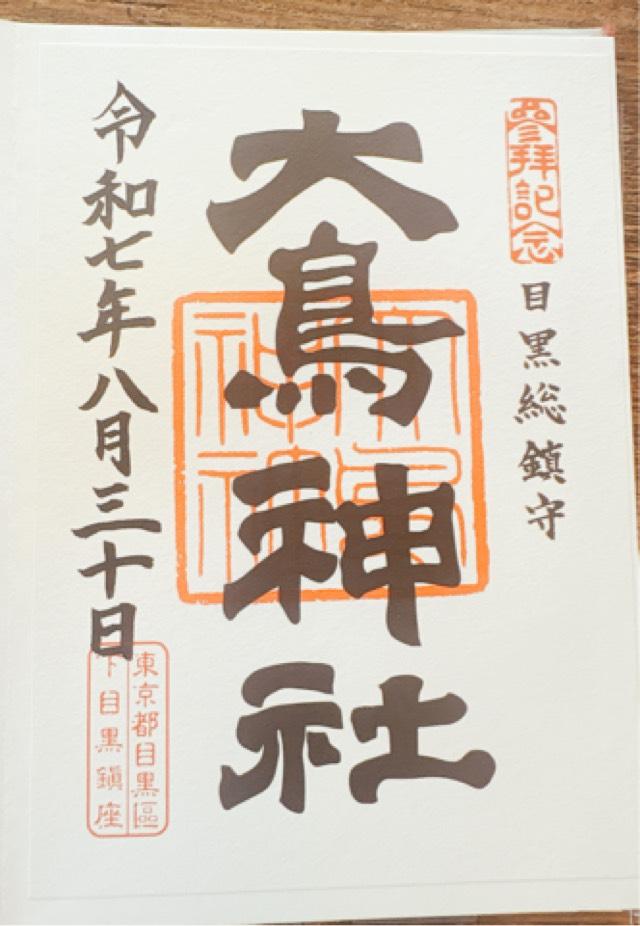 參拜記念
目黒総鎮守
大鳥神社
令和七年八月三十日
東京都目黒區
下目黒鎭座